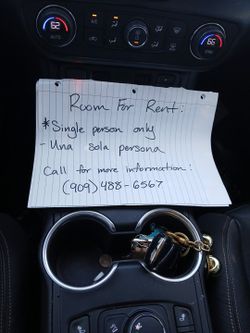 Room For Rent:
*Single person only
- Una sola persona
Call for more information:
(909) 488-6567